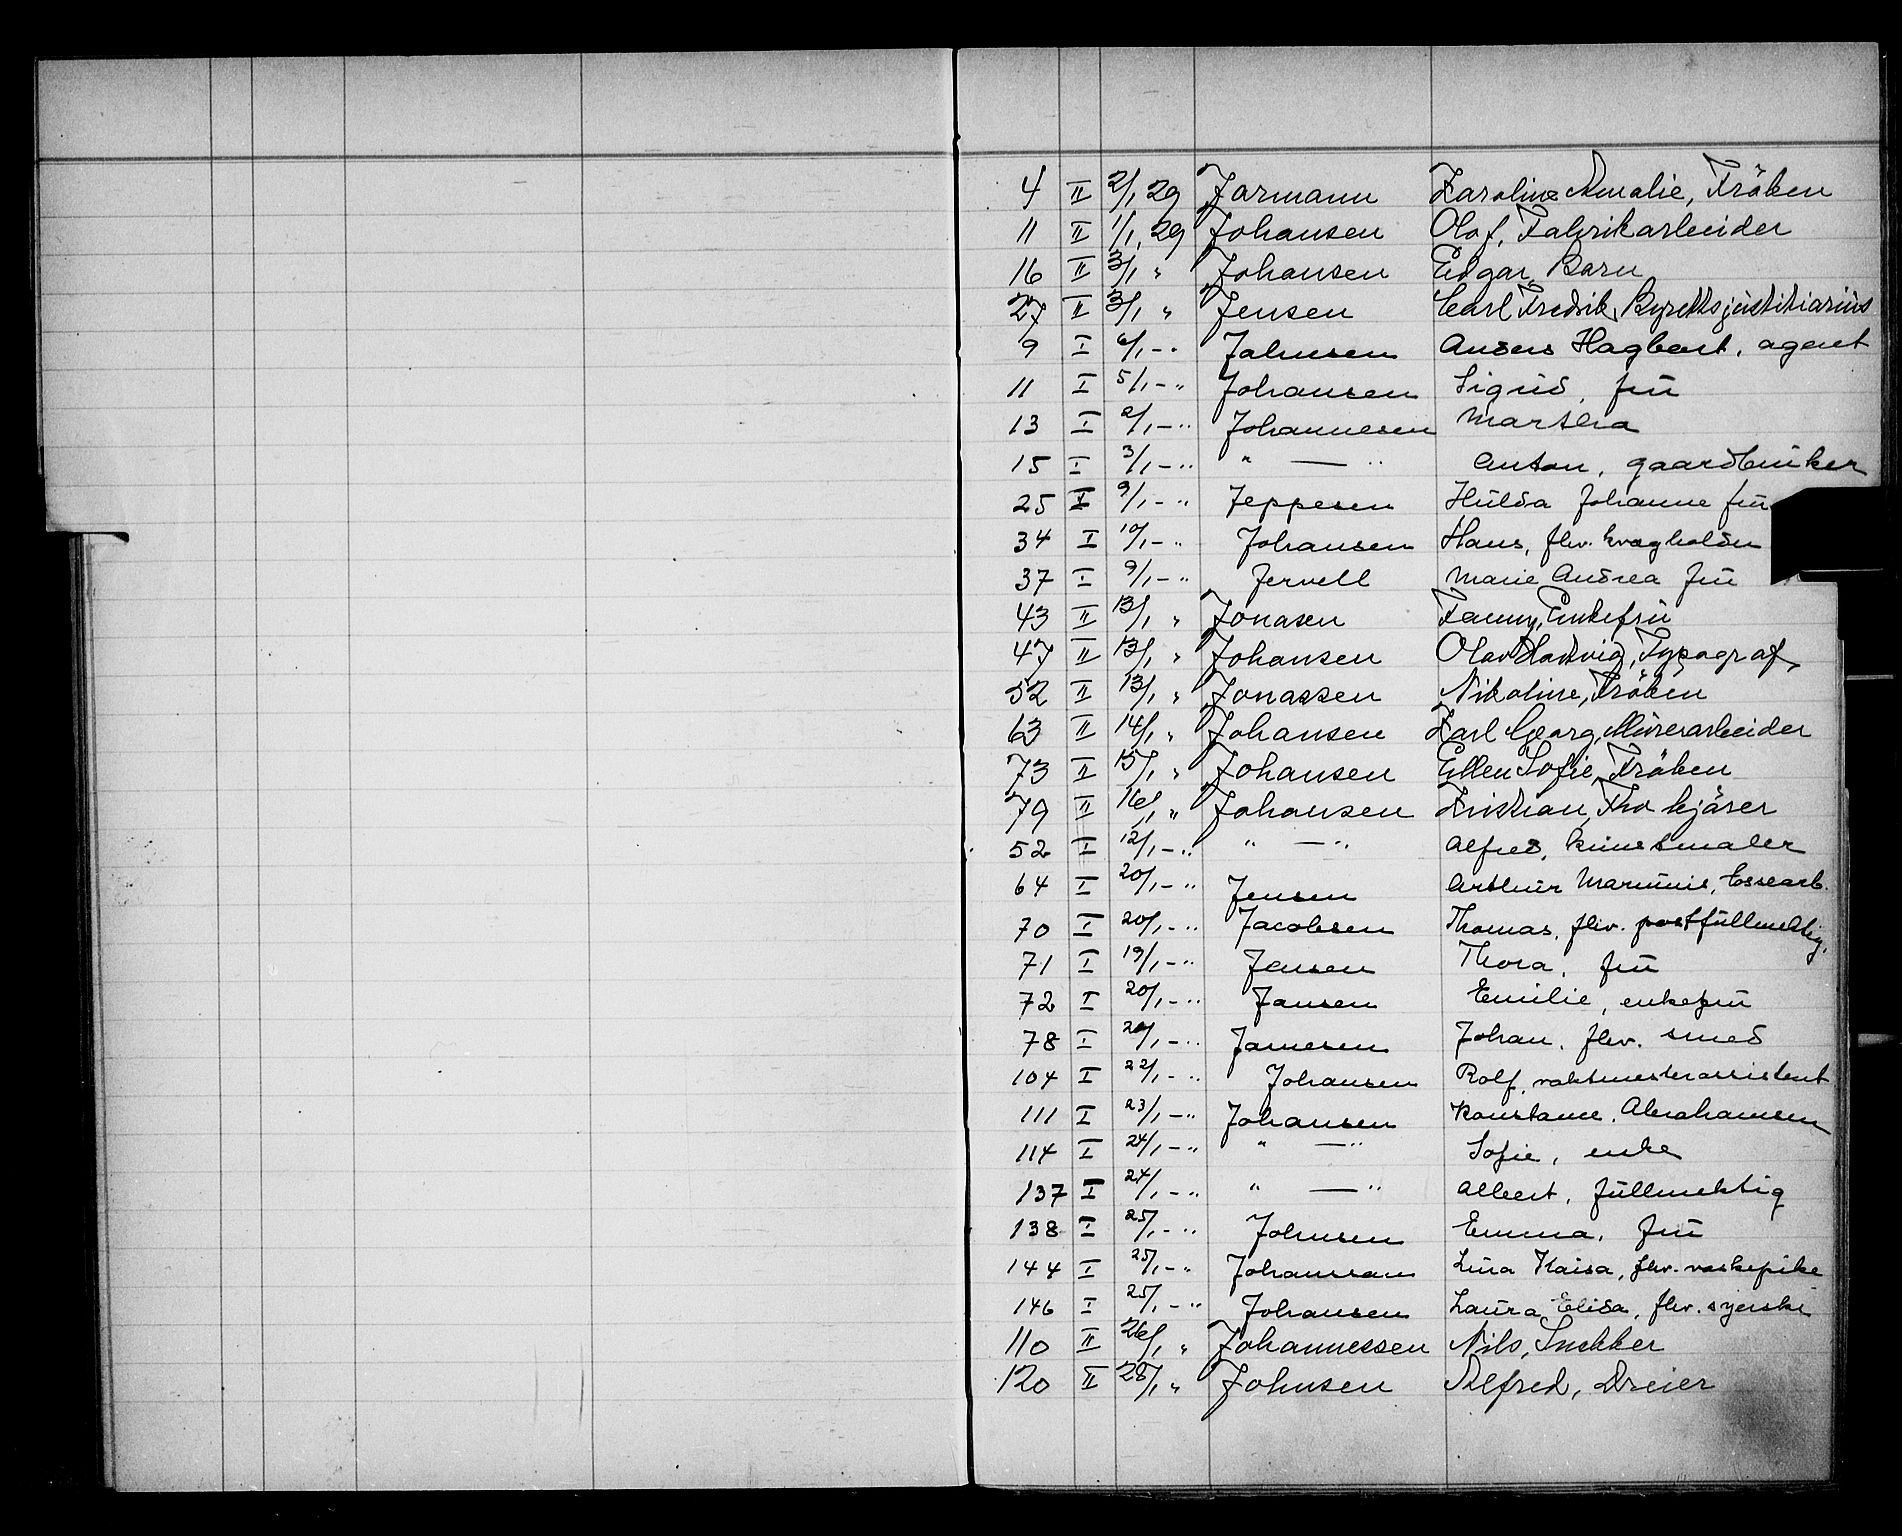 4 II 2/1 29 Jarmann Karoline Amalie, Fröken
11 II 1/1, 29 Johansen Olof, Fabrikarbeider
16 II 3/1 " Johansen Edgar, Barn
27 II 3/1 " Jensen Carl Fredrik, Byrettsjustitiarius
9 I 6/1 - " Jahnsen Anders Hagbart, agent
11 I 5/1 - " Johansen Sigrid, fru
13 I 2/1 - " Johannesen Martha
15 I 3/1 - " " — " Anton, gaardbruker
25 I 9/1 - " Jeppesen Hulda Johanne fru
34 I 10/1 - " Johansen Hans, fhv. kvægholder
37 I 9/1 - " Jervell Marie Andrea fru
43 II 13/1 " Jonasen Fanny, Enkefru
47 II 13/1 " Johansen Olav Hartvig, Typograf
52 II 13/1 " Jonassen Nikoline, Fröken
63 II 14/1 " Johansen Karl Georg, Murerarbeider
73 II 15/1 " Johansen Ellen Sofie, Fröken
79 II 16/1 " Johansen Kristian, Fhv kjörer
52 I 12/1 - " " — " Alfred, kunstmaler
64 I 20/1 - " Jensen Arthur Marinius,
70 I 20/1 - " Jacobsen Thomas, fhv. postfullmektig,
71 I 19/1 - " Jensen Thora, fru
72 I 20/1 - " Jansen Emilie, enkefru
78 I 20/1 - " Jamesen Johan, fhv. smed
104 I 22/1 - " Johansen Rolf, vaktmesterassistent
111 I 23/1 - " Johansen Konstance, Abrahamsen
114 I 24/1 - " " — " Sofie, enke
137 I 24/1 - " " — " Albert, fullmektig
138 I 25/1 - " Johnsen Emma, fru
144 I 25/1 - " Johanssan Lina Kaisa, fhv. vaskepike
146 I 25/1 - " Johansen Laura Elida, fhv. syerske
110 II 26/1 " Johannessen Nils, Snekker
120 II 28/1 " Johnsen Alfred, Dreier